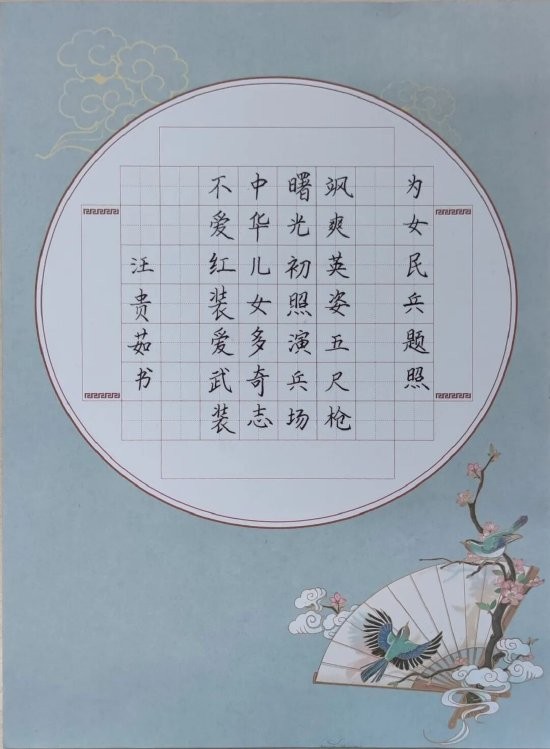 为女民兵题照
飒爽英姿五尺枪
曙光初照演兵场
中华儿女多奇志
不爱红装爱武装
汪贵茹书